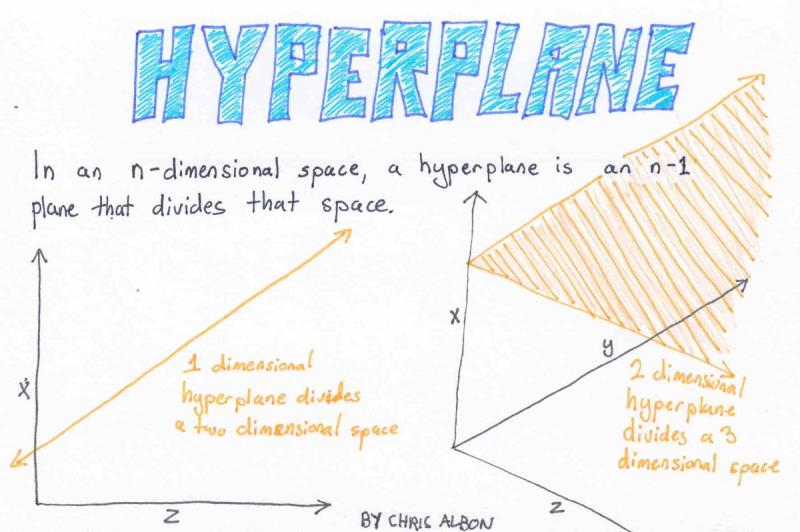 HYPERPLANE
In an n-dimensional space, a hyperplane is an n-1
plane that divides that space.
X
1 dimensional
hyperplane divides
a two dimensional space
Z
X
y
2 dimensional
hyperplane
divides a 3
dimensional space
Z
BY CHRIS ALBON